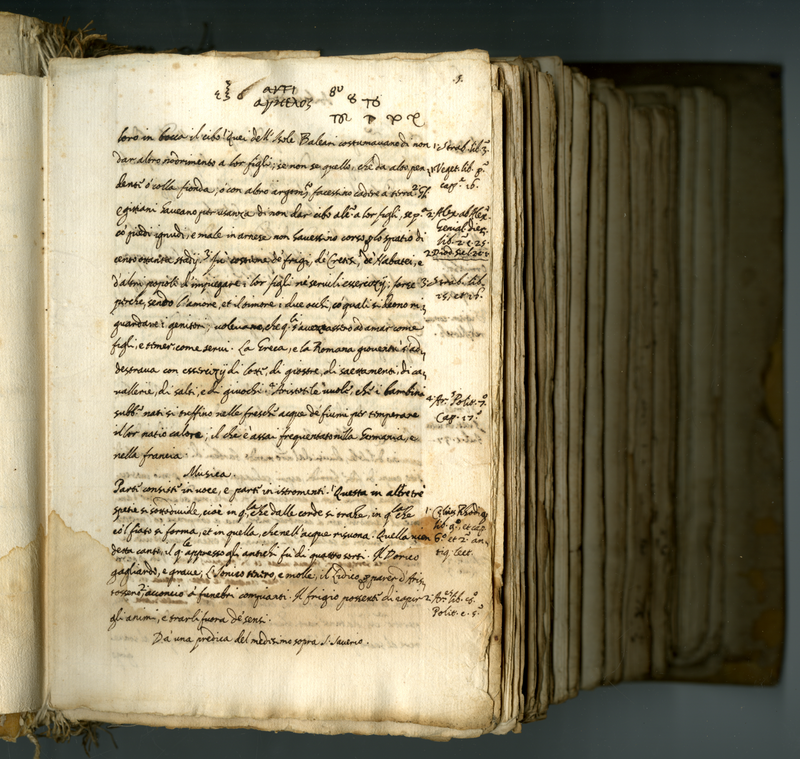 αντι
αγγελος
.1.
loro in bocca il cibo. Quei dell'Isole Baleari costumavano di non
dar altro nodrimento a lor figli, se non se quello, che da alto pen
denti ò colla fionda, ò con altro facessino cadere à terra. Gl'
egittiani haveano per usanza di non dar cibo alc.o a lor figli, se p.a
cò piedi ignudi, e male in arnese non havessino corso p lo spatio di
cento ottanta stadij. Fù costume de frigi, de Cretes. de Nabatei, e
d'altri popoli d'impiegare i lor figli ne servili essercitij; forse
perche, sendo l'amore, et il timore i due occhi, cò quali si deono ri,
guardare i genitori, voleano, che q.li ad amar come
figli, e temer, come servi. La Greca, e la Romana gioventù s'ad,
destrava con essercitij di lotte, di giostre, di saettamenti, di ca,
vallerie, di salti, e di giuochi. Aristotile vuole, che i bambini
subb.o nati si tuffino nelle fresche acque de fiumi per temperare
il lor natio calore; il che è assai frequentato nella Germania, e
nella francia.
Musica.
Parte consiste in voce, e parte in istromenti. Questa in altre tre
spetie si sottodivide, cioè in q.lla che dalle corde si trahe, in q.lla che
cò l'fiato si forma, et in quella, che nell'acque risuona. Quella vien
detta canto, il q.le appresso gli antichi fu di quattro sorti. Il Dorico
gagliardo, e grave, l'Ionico tenero, e molle, il Lidico, a parer d'Aris,
tosseno, acconcio à funebri compianti. Il frigio possente di rapir
gli animi, e trarli fuora de sensi.
Da una predica del medesimo sopra S. Saverio.
1. Strab. lib. 3.
1. Veget. lib. p.o
cap.o 16.
2. Alex. ab Alex.
Genial. dies.
lib. 2. c. 25.
3. Strab. lib.
15, et 16.
4. Ar. Polit. 7.
Cap. 17.
1. Celius Rhodig.
lib. 9.o et cap.
tiq. lect.
2. Ar. lib. 8.
Polit. c. 5.